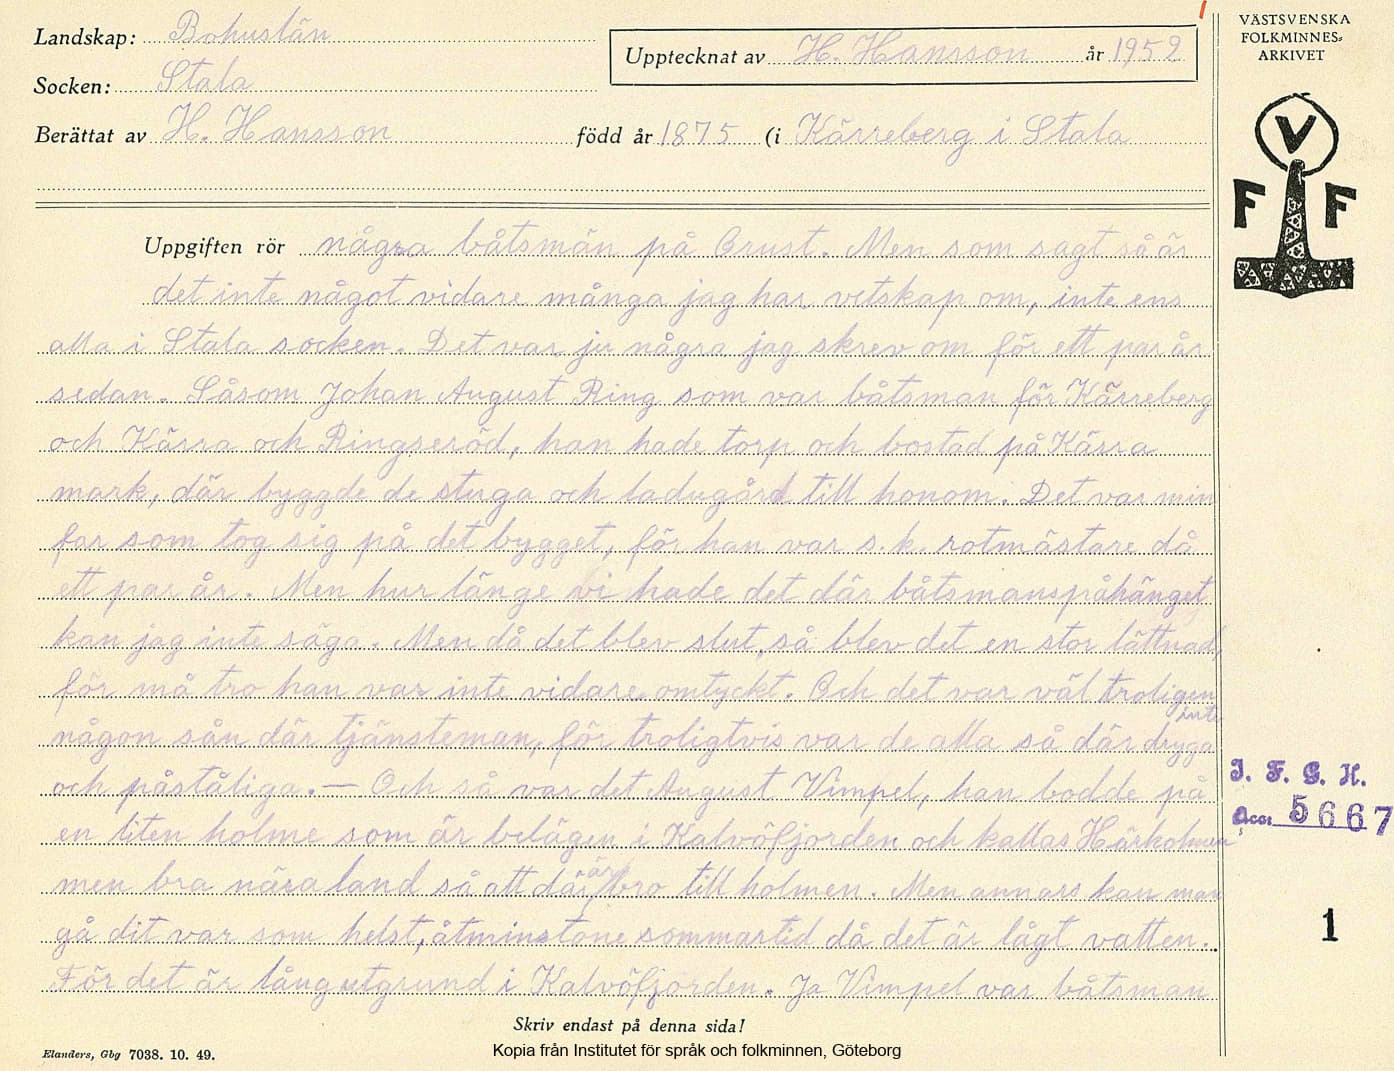 VÄSTSVENSKA
FOLKMINNES=
ARKIVET
Landskap: Bohuslän
Upptecknat av H. Hansson år 1952
Socken: Stala
Berättat av H. Hansson född år 1875 (i Kärreberg i Stala
V
F F
Uppgiften rör några båtsmän på Orust. Men som sagt så är
det inte något vidare många jag har vetskap om, inte ens
alla i Stala socken. Det var ju några jag skrev om för ett par år
sedan. Såsom Johan August Ring som var båtsman för Kärreberg
och Kärra och Ringseröd, han hade torp och bostad på Kärra
mark, där byggde de stuga och ladugård till honom. Det var min
far som tog sig på det bygget, för han var s.k. rotmästare då
ett par år. Men hur länge vi hade det där båtsmanspåhänget
kan jag inte säga. Men då det blev slut, så blev det en stor lättnad,
för må tro han var inte vidare omtyckt. Och det var väl troligen
inte
någon sån där tjänsteman, för troligtvis var de alla så där dryga
och påståliga. — Och så var det August Vimpel, han bodde på
en liten holme som är belägen i Kalvöfjorden och kallas Härholmen
men bra nära land så att där är bro till holmen. Men annars kan man
gå dit var som helst, åtminstone sommartid då det är lågt vatten.
För det är långutgrund i Kalvöfjorden. Ja Vimpel var båtsman
I. F. G. H.
Acc. 5667
1
Skriv endast på denna sida!
Elanders, Gbg 7038. 10. 49.
Kopia från Institutet för språk och folkminnen, Göteborg